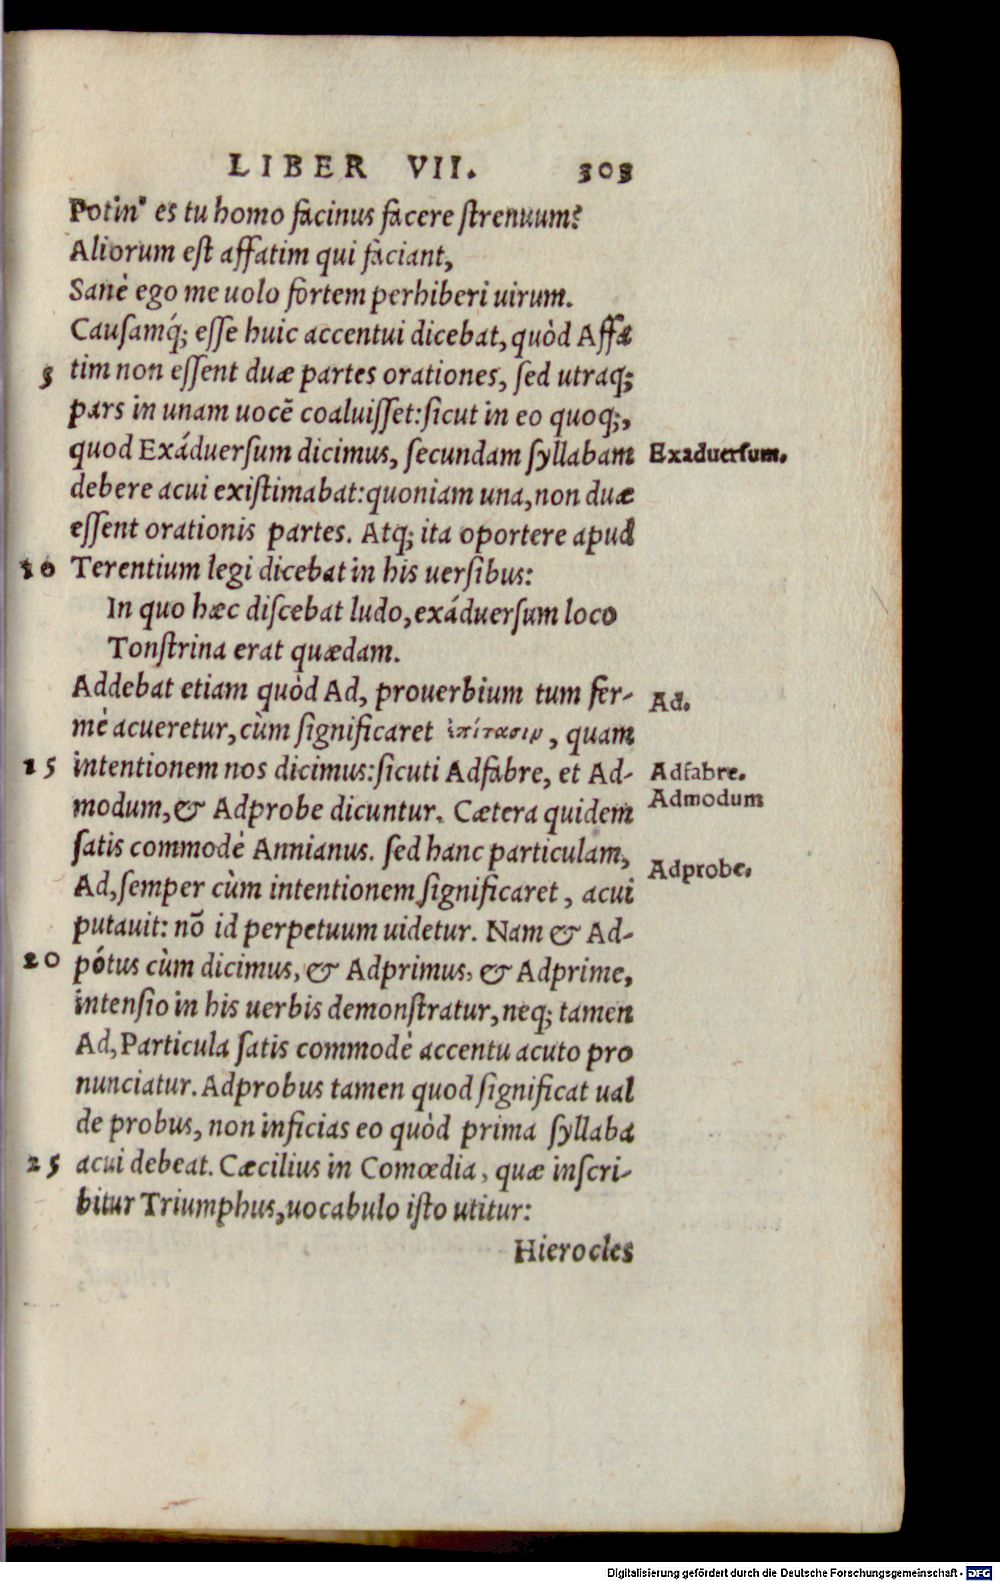 LIBER VII. 303
Potin' es tu homo facinus facere ſtrenuum?
Aliorum eſt affatim qui faciant,
Sanè ego me uolo fortem perhiberi uirum.
Cauſamq́; eſſe huic accentui dicebat, quòd Affa
5 tim non eſſent duæ partes orationes, ſed utraq;
pars in unam uocē coaluiſſet: ſicut in eo quoq;,
quod Exáduerſum dicimus, ſecundam ſyllabam Exaduerſum.
debere acui exiſtimabat: quoniam una, non duæ
eſſent orationis partes. Atq; ita oportere apud
10 Terentium legi dicebat in his uerſibus:
In quo hæc diſcebat ludo, exáduerſum loco
Tonſtrina erat quædam.
Addebat etiam quòd Ad, prouerbium tum fer- Ad.
mè acueretur, cùm ſignificaret ἐπίτασιν, quam
15 intentionem nos dicimus: ſicuti Adfabre, et Ad- Adfabre.
modum, & Adprobe dicuntur. Cætera quidem Admodum
ſatis commodè Annianus. ſed hanc particulam,
Ad, ſemper cùm intentionem ſignificaret, acui Adprobe.
putauit: nō id perpetuum uidetur. Nam & Ad-
20 pótus cùm dicimus, & Adprimus, & Adprime,
intenſio in his uerbis demonſtratur, neq; tamen
Ad, Particula ſatis commodè accentu acuto pro
nunciatur. Adprobus tamen quod ſignificat ual
de probus, non inficias eo quòd prima ſyllaba
25 acui debeat. Cæcilius in Comœdia, quæ inſcri-
bitur Triumphus, uocabulo iſto utitur:
Hierocles
Digitalisierung gefördert durch die Deutsche Forschungsgemeinschaft - DFG